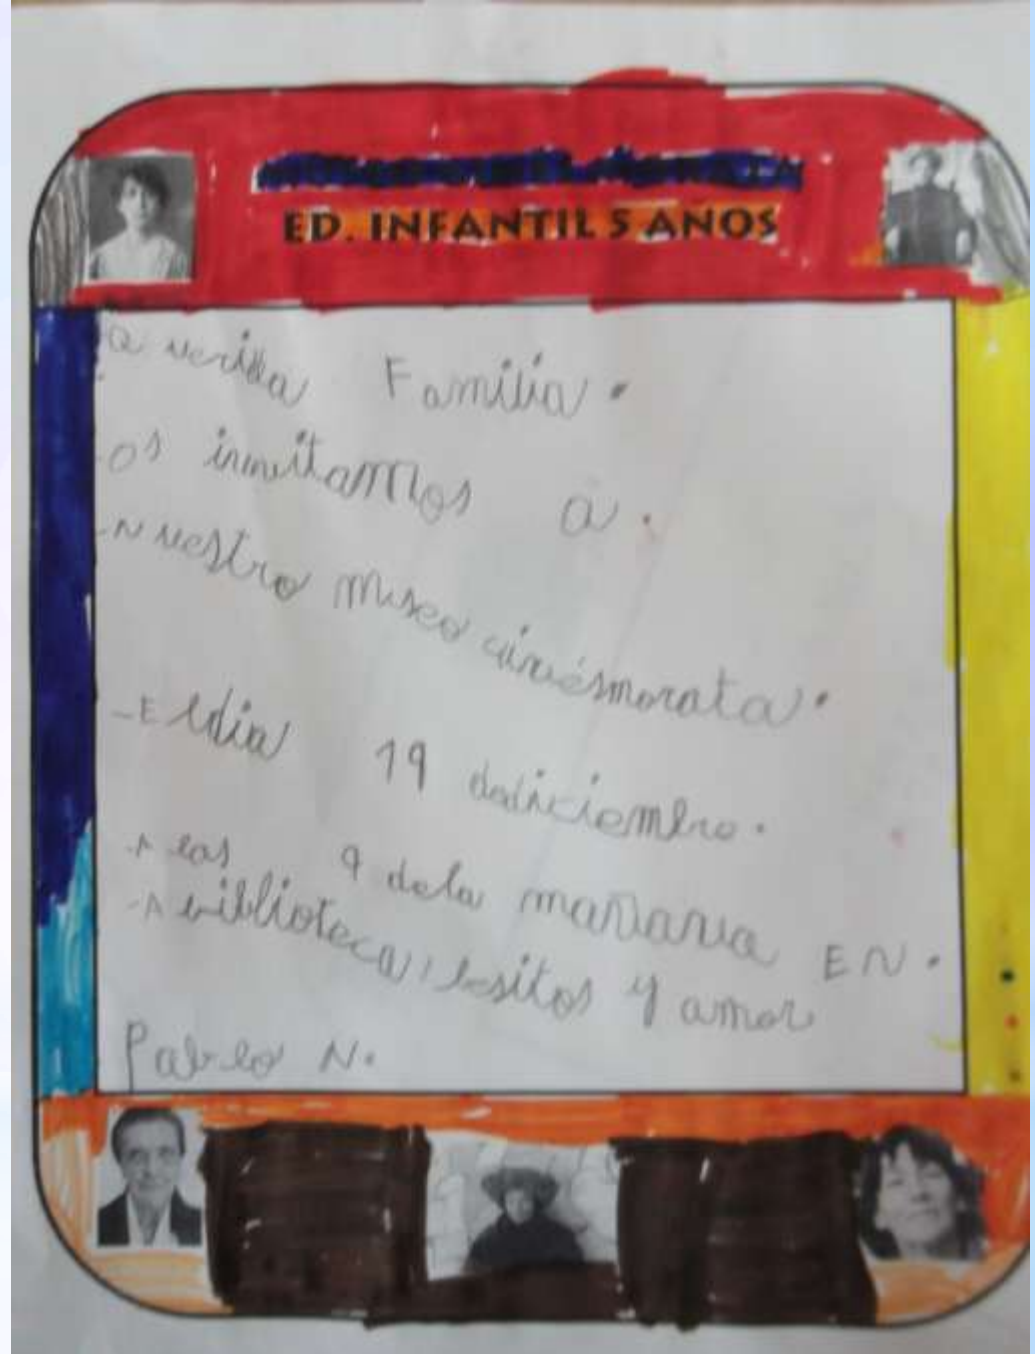 ED. INFANTIL 5 AÑOS
Familia.
os invitamos a.
Nuestro museo
El dia 19 dediciembre.
A las 9 dela mañana EN.
A biblioteca, besitos y amor
Pablo N.